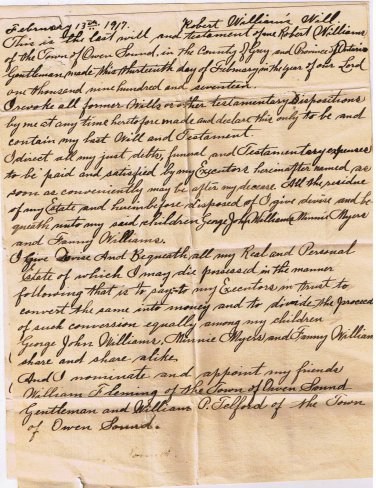 February 13th 1917. Robert William's Will
This is the last will and testament of me Robert Williams
of the Town of Owen Sound, in the County of Grey and Province of Ontario
Gentleman, made this thirteenth day of February in the year of our Lord
one thousand nine hundred and seventeen.
I revoke all former Wills or other testamentary Dispositions
by me at any time heretofore made and declare this only to be and
contain my last Will and Testament.
I direct all my just debts, funeral and Testamentary expenses
to be paid and satisfied by my Executors hereinafter named as
soon as conveniently may be after my decease. All the residue
of my Estate and hereinbefore disposed of I give devise and be
queath unto my said children George John Williams Minnie Myers
and Fanny Williams.
I give Devise And Bequeath all my Real and Personal
Estate of which I may die possessed in the manner
following that is to say to my Executors in trust to
convert the same into money and to divide the proceed
of such conversion equally among my children
George John Williams, Minnie Myers and Fanny William
share and share alike.
And I nominate and appoint my friends
William Fleming of the Town of Owen Sound
Gentleman and William P. Telford of the Town
of Owen Sound.